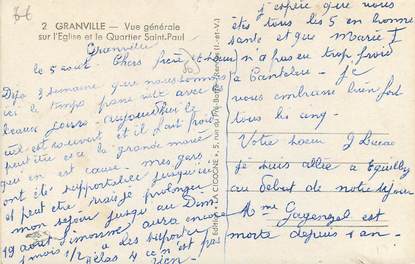 2 GRANVILLE — Vue générale
sur l'Eglise et le Quartier Saint-Paul
Granville
le 5 août. Chers frère et soeur
Déjà 3 semaine que nous sommes
ici le temps passe vite avec
beaux jours aujourd'hui le
ciel est couvert et il fait froid
peut être est-ce la grande marée
qui en est cause. mes gars
ont été supportable jusqu'ici
et peut être vais-je prolonger
mon séjour jusqu'au Dim
19 août Simonne aura encore
1 mois 1/2 à les supporter
hélas ce n'est pas
rien
j'espère que nous
êtes tous les 5 en bonne
santé et que marie T
n'a pas eu trop froid
à Canteleu. je
vous embrasse bien fort
tous les cinq.
Votre soeur J
je suis allée à Equilly
au début de notre séjour
Mme est
morte depuis 1 an.
LA CIGOGNE